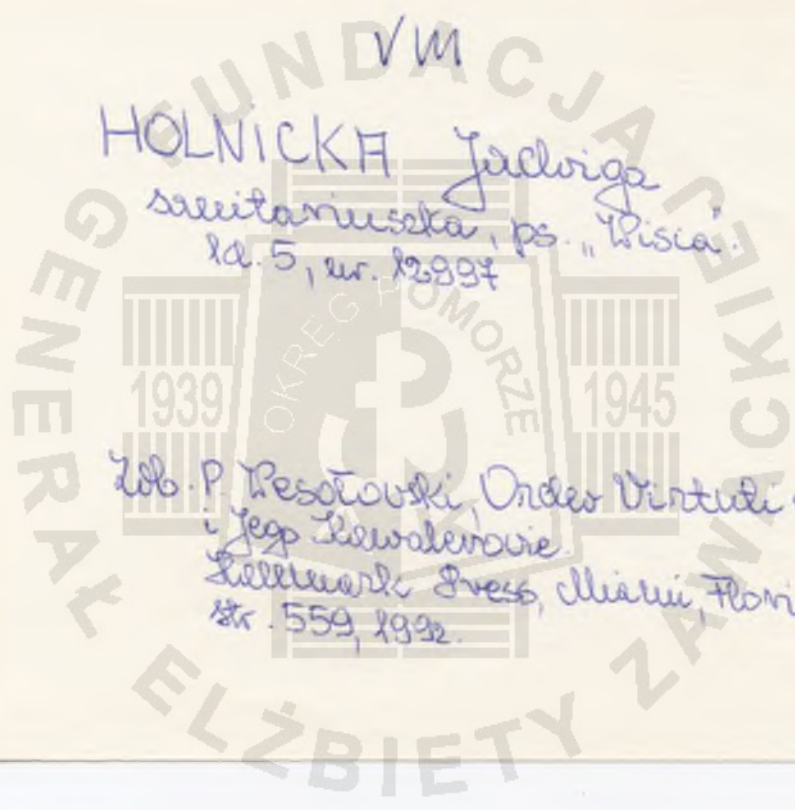 VM
HOLNICKA Jadwiga
sanitariuszka, ps. „Wisia".
kl. 5, nr. 12997
Zob. P. Wesołowski, Order Virtuti
i Jego Kawalerowie.
Hallmark Press, Miami, Flori
str. 559, 1992.
FUNDACJA
GENERAŁ
ELŻBIETY ZAWACKIEJ
OKRĘG POMORZE
1939
1945